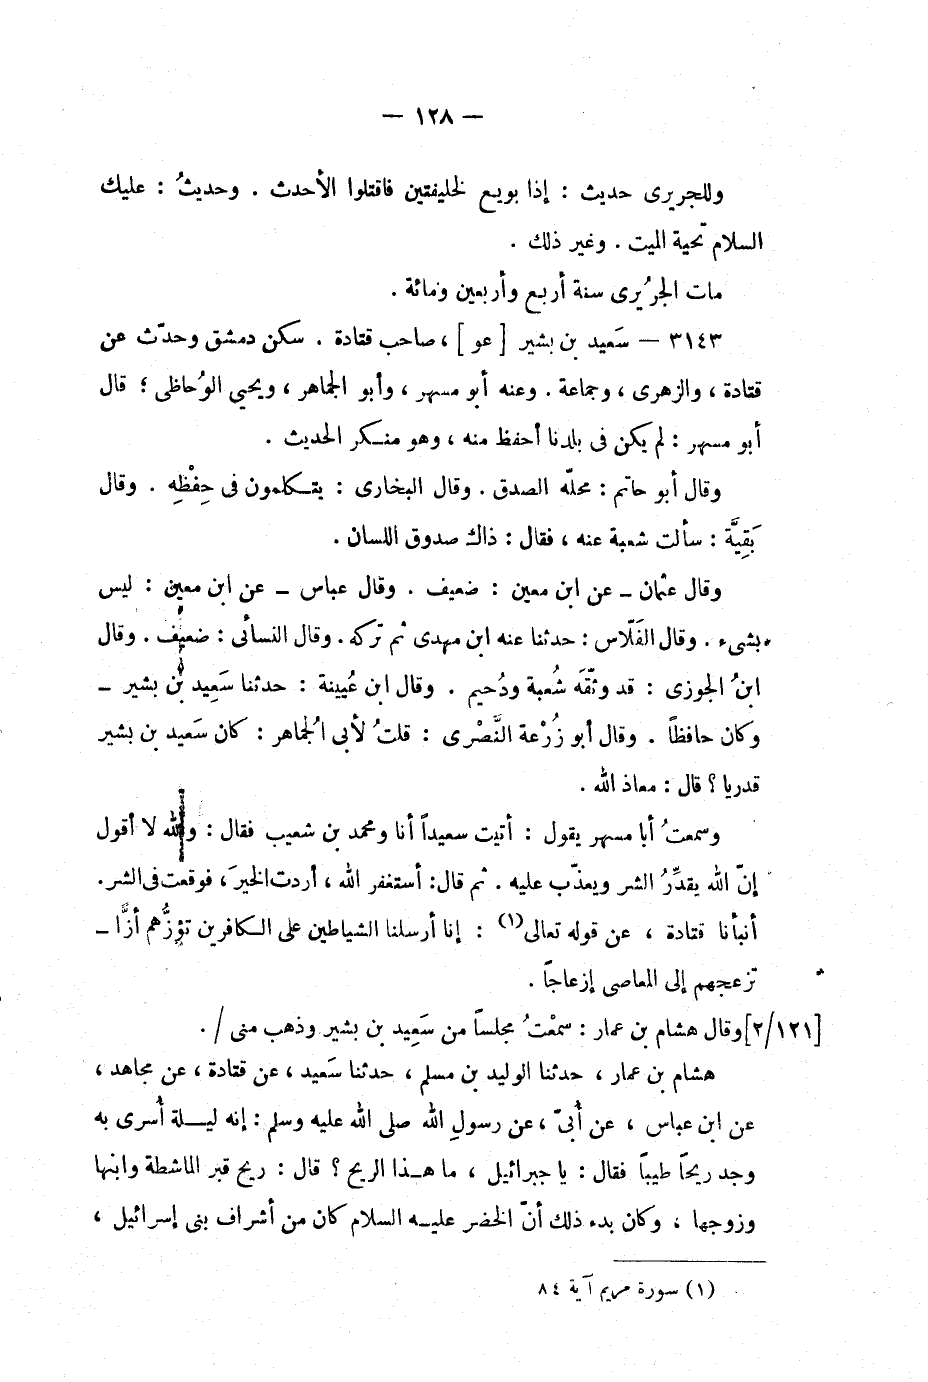 — ١٢٨ —
وللجريرى حديث : إذا بويع لخليفتين فاقتلوا الأحدث . وحديثُ : عليك
السلام تحية الميت . وغير ذلك .
مات الجرُيرى سنة أربع وأربعين ومائة .
٣١٤٣ — سَعيد بن بشير [ عو ] ، صاحب قتادة . سكن دمشق وحدّث عن
قتادة ، والزهرى ، وجماعة . وعنه أبو مسهر ، وأبو الجماهر ، ويحيي الوُحاظى ؛ قال
أبو مسهر : لم يكن فى بلدنا أحفظ منه ، وهو منكر الحديث .
وقال أبو حاتم : محلّه الصدق . وقال البخارى : يتكلمون فى حِفْظِه . وقال
بَقِيَّة : سألت شعبة عنه ، فقال : ذاك صدوق اللسان .
وقال عثمان – عن ابن معين : ضعيف . وقال عباس – عن ابن معين : ليس
بشىء . وقال الفَلّاس : حدثنا عنه ابن مهدى ثم تركه . وقال النسائى : ضعيف . وقال
ابنُ الجوزى : قد وثّقَه شُعبة ودُحيم . وقال ابن عُيينة : حدثنا سَعِيد بن بشير –
وكان حافظاً . وقال أبو زُرْعة النَّصْرى : قلتُ لأبى الجُماهر : كان سَعيد بن بشير
قدريا ؟ قال : معاذ الله .
وسمعتُ أبا مسهر يقول : أتيت سعيداً أنا ومحمد بن شعيب فقال : والله لا أقول
إنّ الله يقدِّرُ الشر ويعذّب عليه . ثم قال: أستغفر الله ، أردت الخيرَ ، فوقعت فى الشر.
أنبأنا قتادة ، عن قوله تعالى(١) : إنا أرسلنا الشياطين على الكافرين تؤزُّهم أزًّا –
تزعجهم إلى المعاصى إزعاجاً .
[٢/١٢١] وقال هشام بن عمار : سمعْتُ مجلساً من سَعِيد بن بشير وذهب منى / .
هشام بن عمار ، حدثنا الوليد بن مسلم ، حدثنا سَعيد ، عن قتادة ، عن مجاهد ،
عن ابن عباس ، عن أُبىّ ، عن رسولِ الله صلى الله عليه وسلم : إنه ليلة أُسرى به
وجد ريحاً طيباً فقال : يا جبرائيل ، ما هذا الريح ؟ قال : ريح قبر الماشطة وابنها
وزوجها ، وكان بدء ذلك أنّ الخضر عليه السلام كان من أشراف بنى إسرائيل ،
(١) سورة مريم آية ٨٤